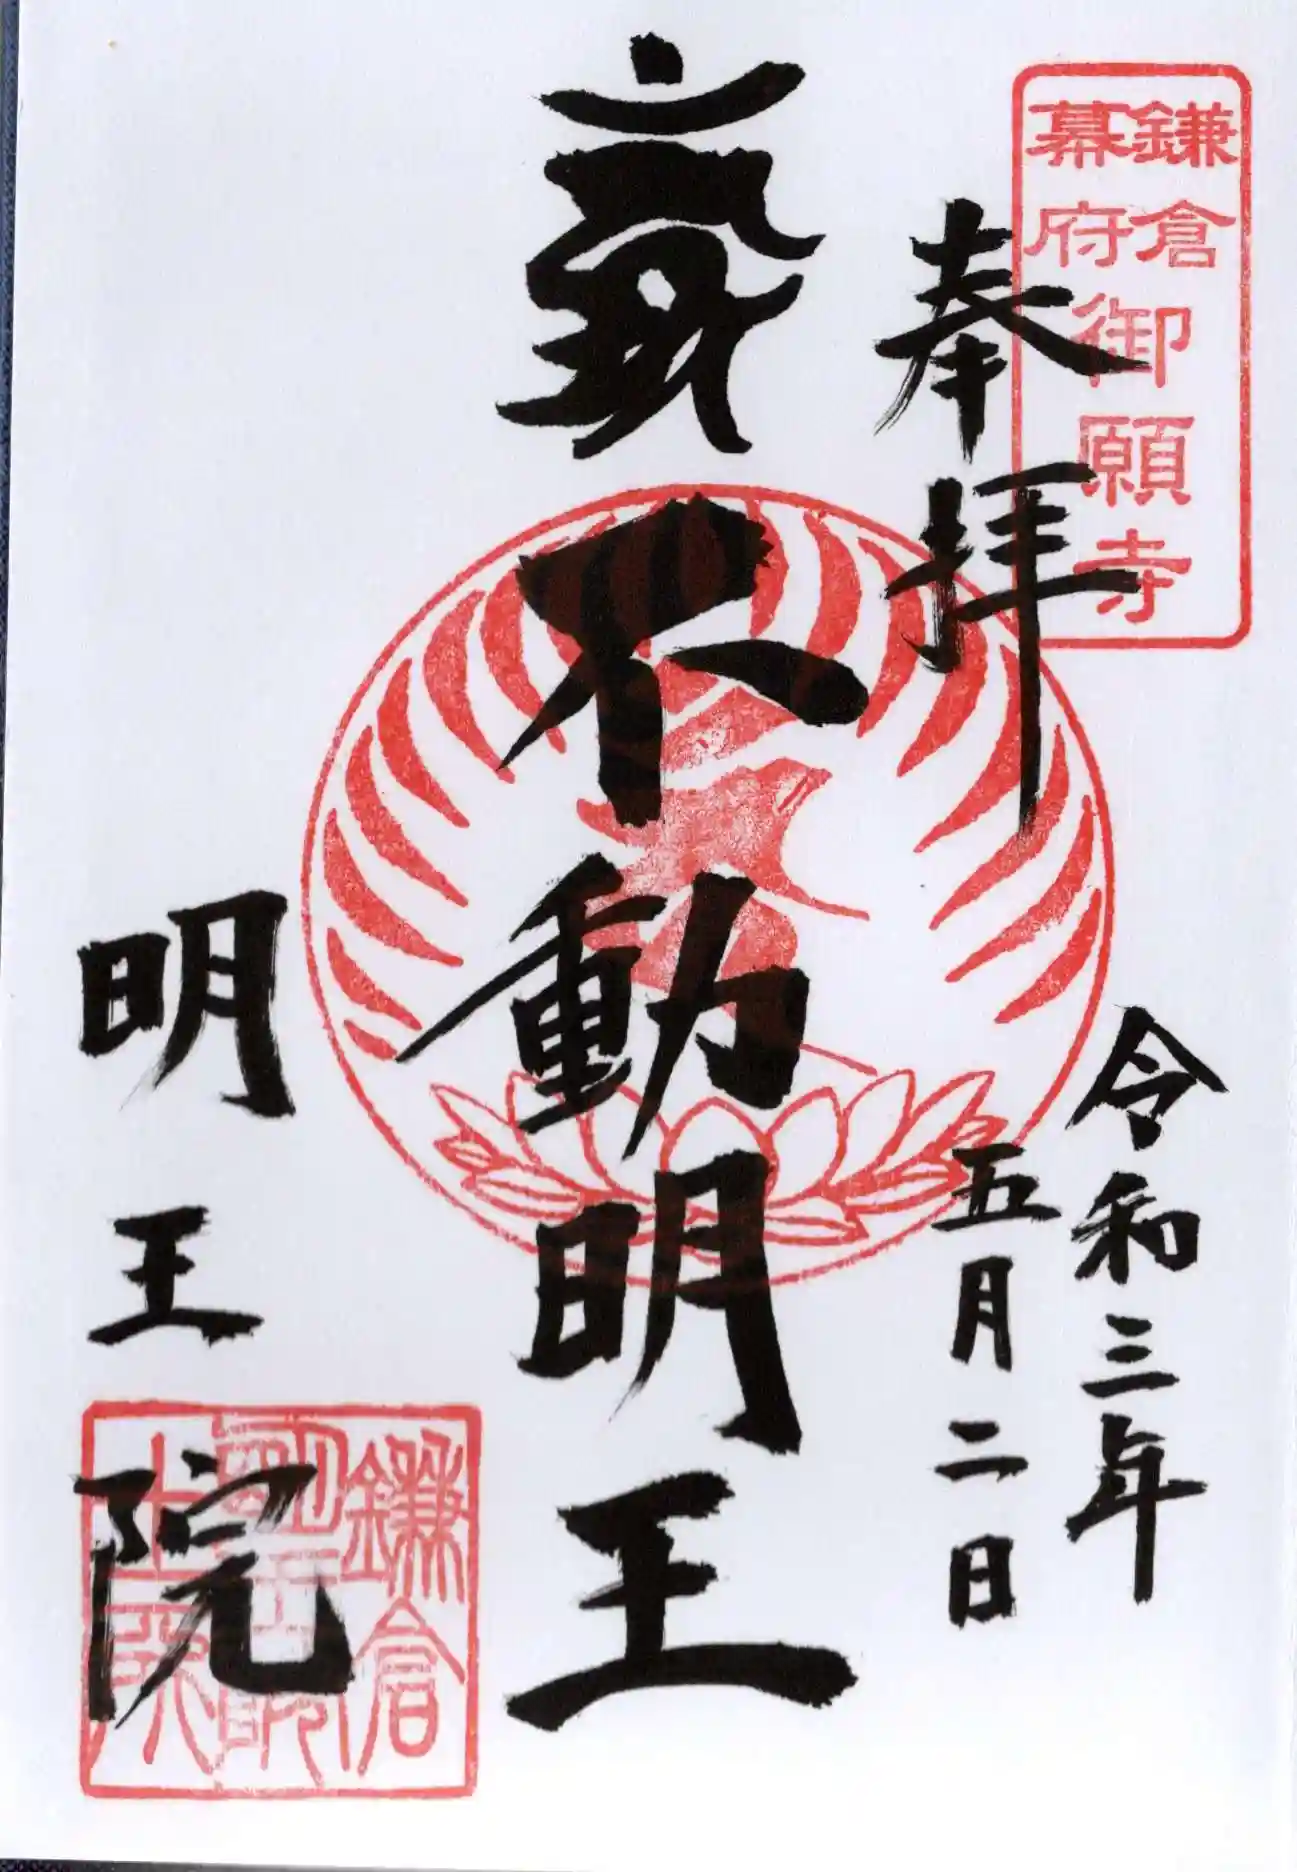 鎌倉
幕府
御願寺
奉拝
令和三年
五月二日
不動明王
明王院
鎌倉